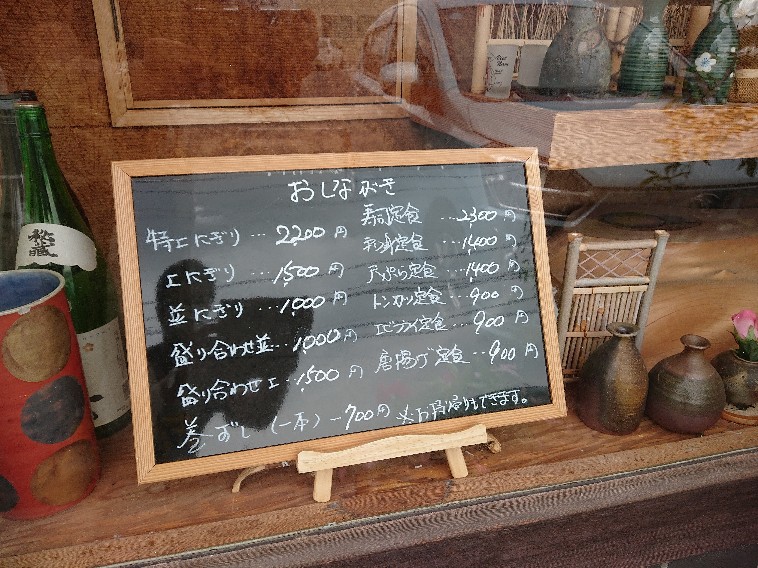 おしながき
特上にぎり…2200円
上にぎり…1,500円
並にぎり…1,000円
盛り合わせ並…1000円
盛り合わせ上…1,500円
巻ずし(一本)—700円
寿司定食…2300円
刺身定食…1,400円
天ぷら定食…1,400円
トンカツ定食…900円
エビフライ定食…900円
唐揚げ定食…900円
※お持帰りもできます。